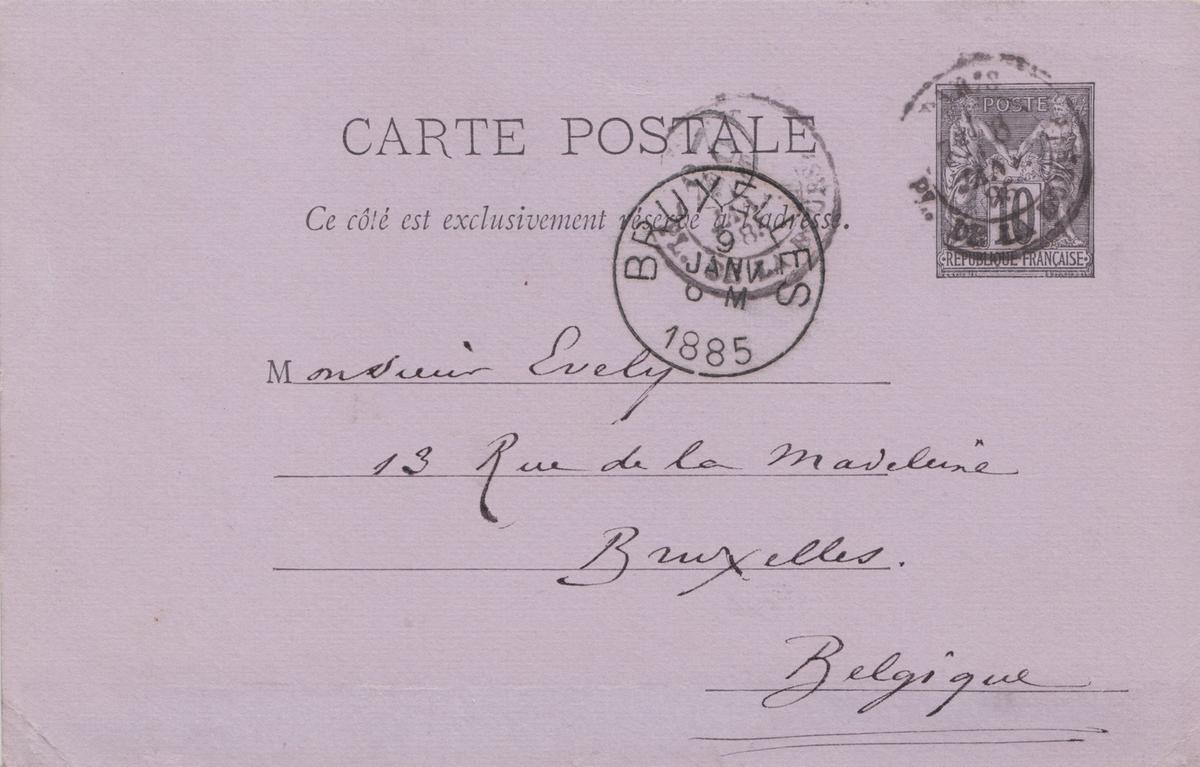 CARTE POSTALE
Ce côté est exclusivement réservé à l'adresse.
POSTE
10
RÉPUBLIQUE FRANÇAISE
BRUXELLES
9
JANV.
6 M
1885
Monsieur Evely
13 Rue de la Madeleine
Bruxelles.
Belgique